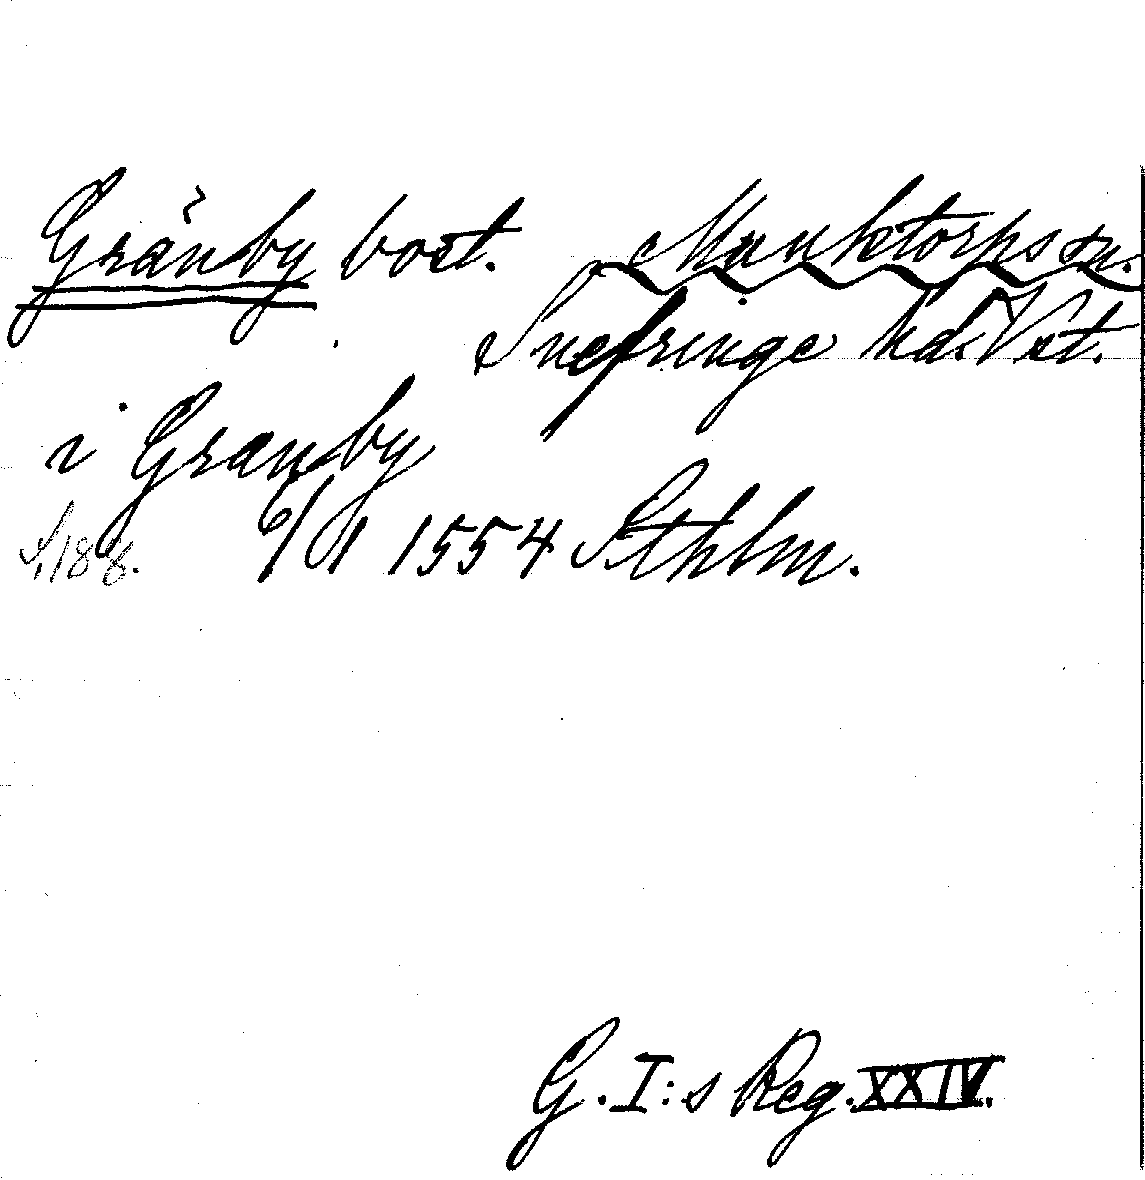 Gränby bost. Munktorps sn.
Snefringe hd. Vst.
i Granby
S. 188. 6/1 1554 Sthlm.
G. I:s Reg. XXIV.